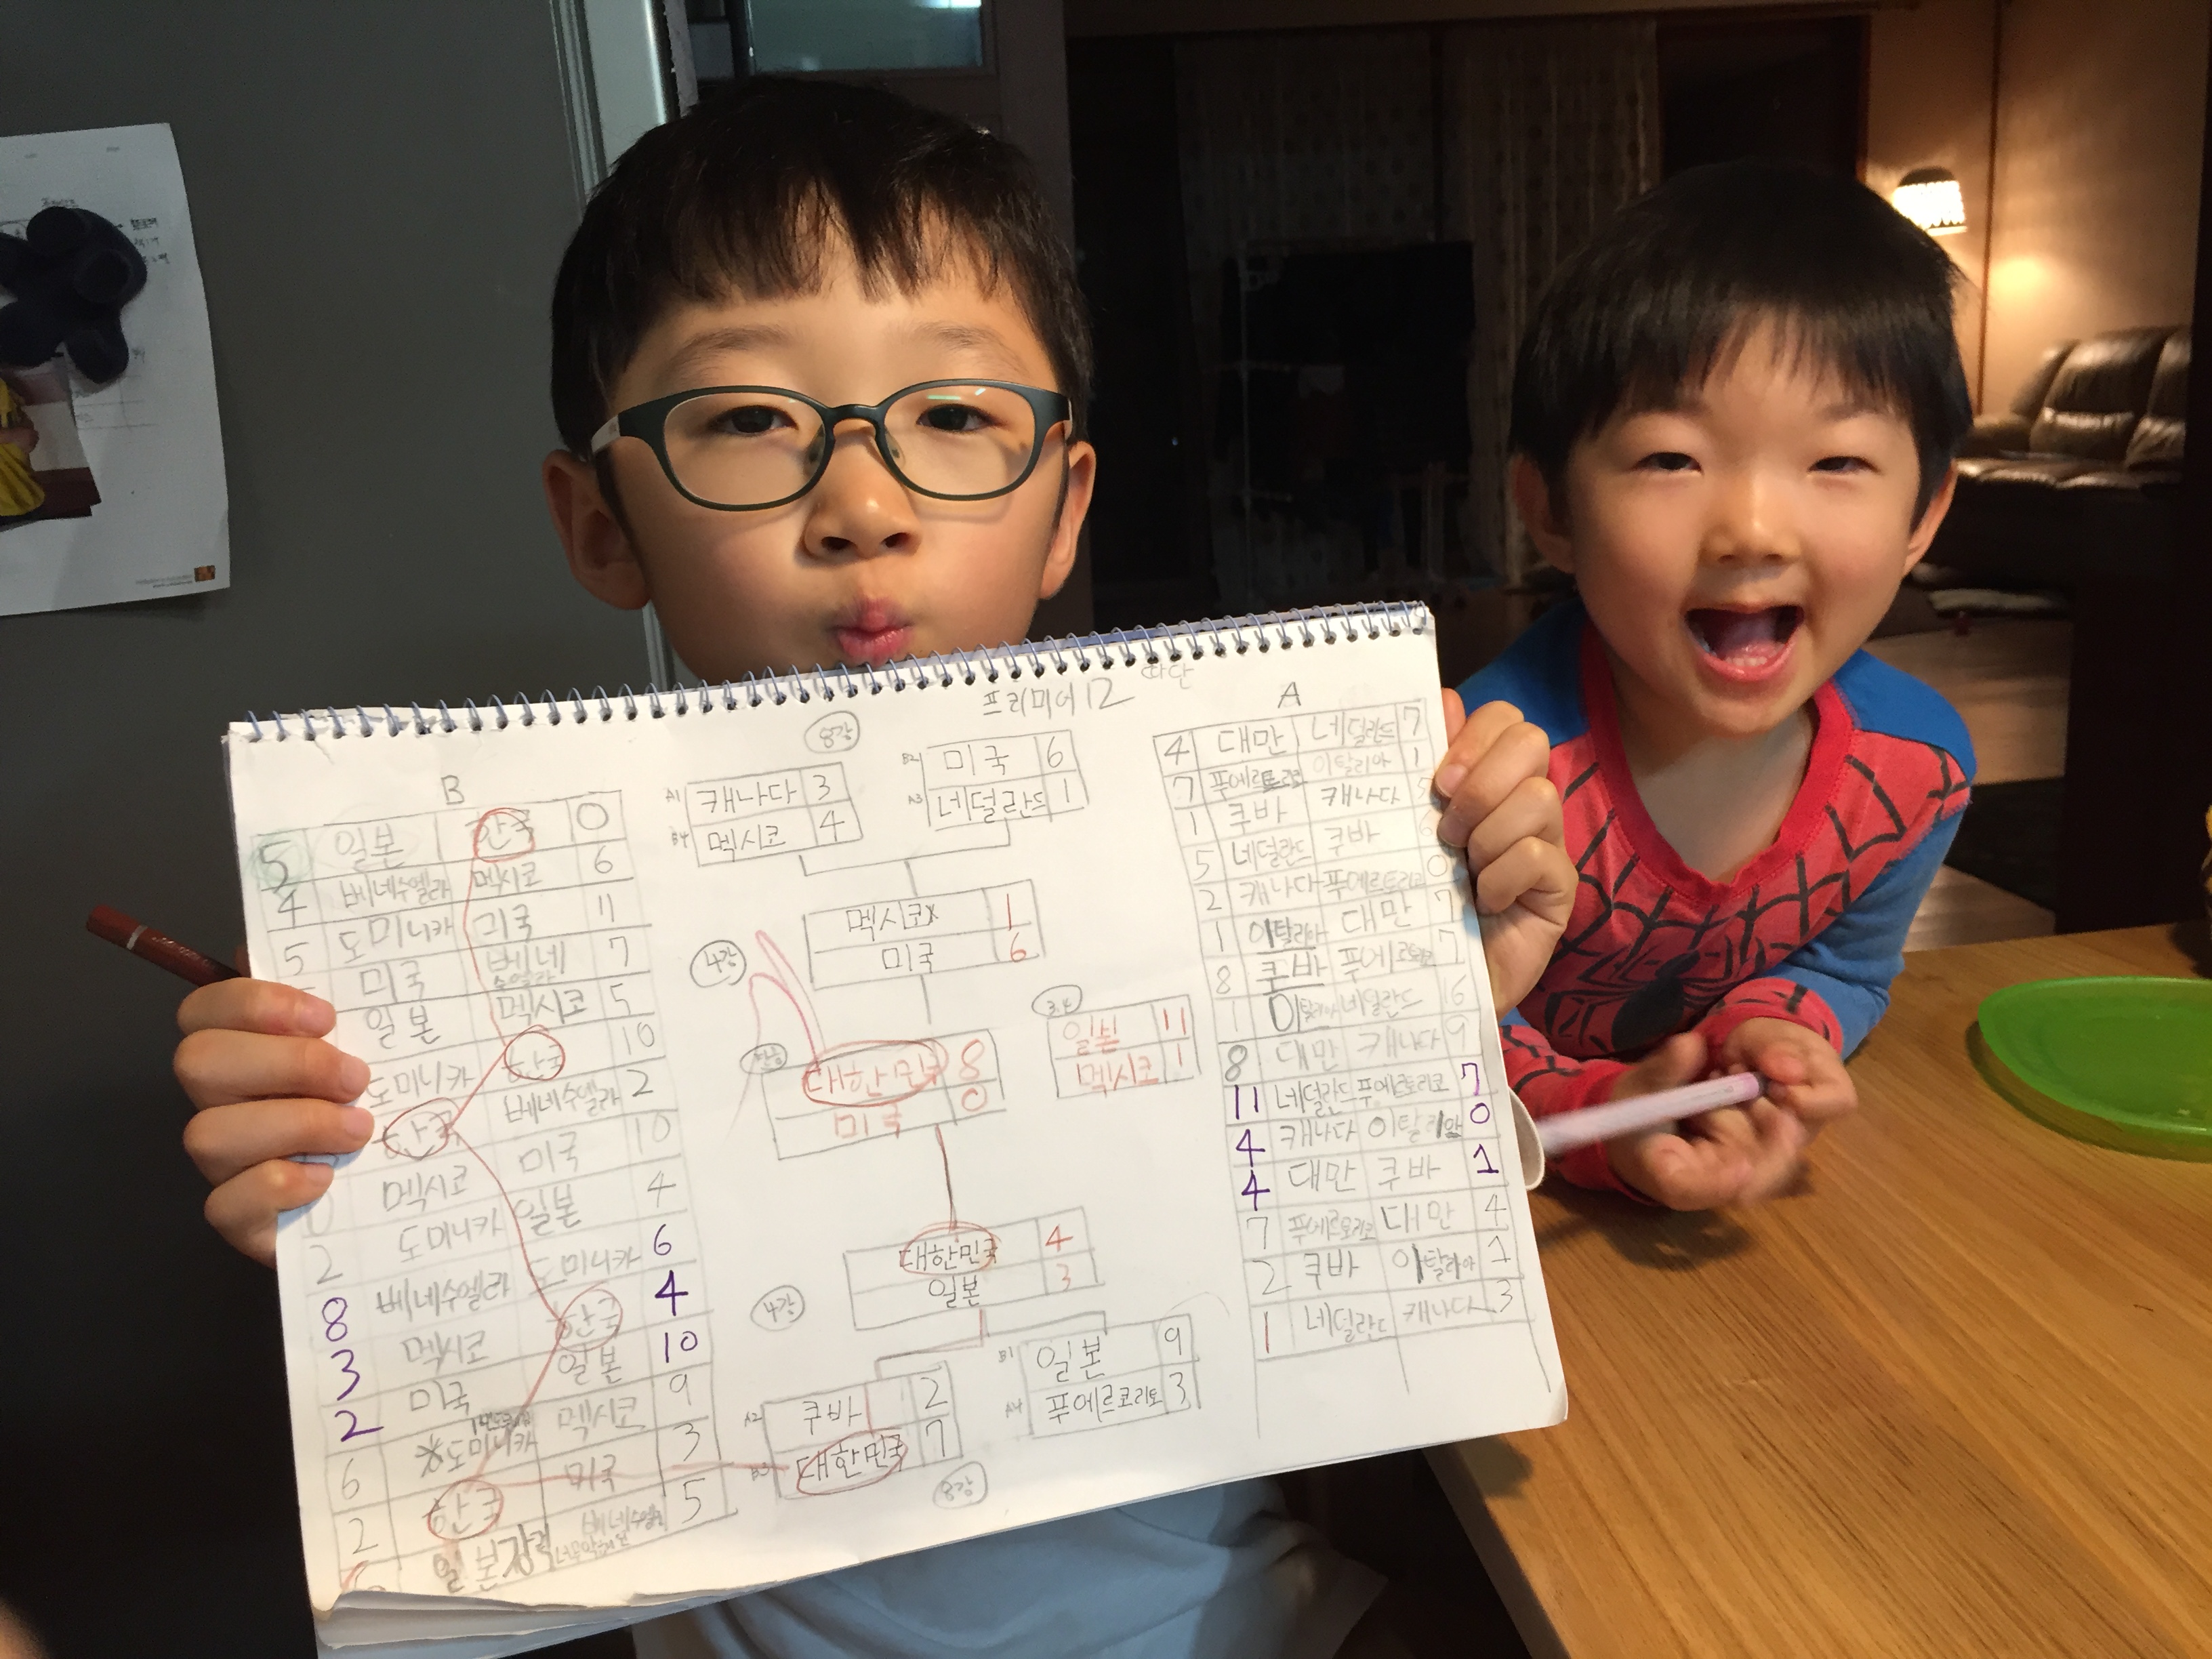 프리미어 12
B
5 일본 한국 0
4 베네수엘라 멕시코 6
5 도미니카 미국 11
미국 베네수엘라 7
일본 멕시코 5
도미니카 한국 10
한국 베네수엘라 2
멕시코 미국 10
2 도미니카 일본 4
8 베네수엘라 도미니카 6
3 멕시코 한국 4
2 미국 일본 10
6 도미니카 멕시코 9
2 한국 미국 3
일본 베네수엘라 5
8강
A1 캐나다 3
B4 멕시코 4
B2 미국 6
A3 네덜란드 1
4강
멕시코 1
미국 6
대한민국 8
미국 0
3.4
일본 11
멕시코 1
대한민국 4
일본 3
4강
B1 일본 9
A4 푸에르코리토 3
A2 쿠바 2
B3 대한민국 7
8강
A
4 대만 네덜란드 7
7 푸에르토리코 이탈리아 1
1 쿠바 캐나다 5
5 네덜란드 쿠바 6
2 캐나다 푸에르토리코 0
1 이탈리아 대만 7
8 쿠바 푸에르토리코 7
1 이탈리아 네덜란드 16
8 대만 캐나다 9
11 네덜란드 푸에르토리코 7
4 캐나다 이탈리아 0
4 대만 쿠바 1
7 푸에르토리코 대만 4
2 쿠바 이탈리아 1
1 네덜란드 캐나다 3